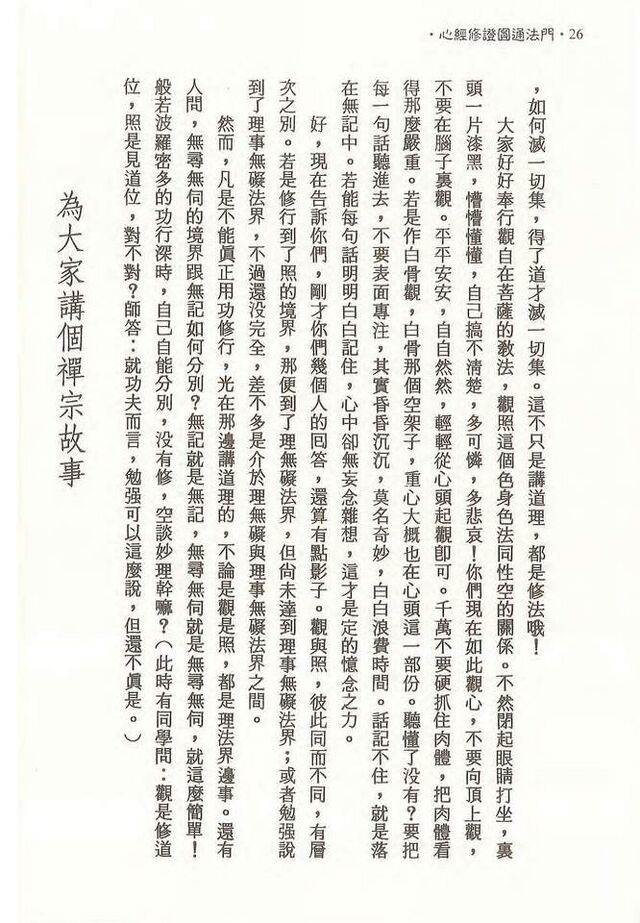 •心經修證圓通法門• 26
，如何滅一切集，得了道才滅一切集。這不只是講道理，都是修法哦！
大家好好奉行觀自在菩薩的教法，觀照這個色身色法同性空的關係。不然閉起眼睛打坐，裏
頭一片漆黑，懵懵懂懂，自己搞不淸楚，多可憐，多悲哀！你們現在如此觀心，不要向頂上觀，
不要在腦子裏觀。平平安安，自自然然，輕輕從心頭起觀卽可。千萬不要硬抓住肉體，把肉體看
得那麼嚴重。若是作白骨觀，白骨那個空架子，重心大概也在心頭這一部份。聽懂了没有？要把
每一句話聽進去，不要表面專注，其實昏昏沉沉，莫名奇妙，白白浪費時間。話記不住，就是落
在無記中。若能每句話明明白白記住，心中卻無妄念雜想，這才是定的憶念之力。
好，現在告訴你們，剛才你們幾個人的囘答，還算有點影子。觀與照，彼此同而不同，有層
次之別。若是修行到了照的境界，那便到了理無礙法界，但尙未達到理事無礙法界；或者勉强說
到了理事無礙法界，不過還没完全，差不多是介於理無礙與理事無礙法界之間。
然而，凡是不能眞正用功修行，光在那邊講道理的，不論是觀是照，都是理法界邊事。還有
人問，無尋無伺的境界跟無記如何分別？無記就是無記，無尋無伺就是無尋無伺，就這麼簡單！
般若波羅密多的功行深時，自己自能分別，没有修，空談妙理幹嘛？（此時有同學問：觀是修道
位，照是見道位，對不對？師答：就功夫而言，勉强可以這麼說，但還不眞是。）
為大家講個禪宗故事